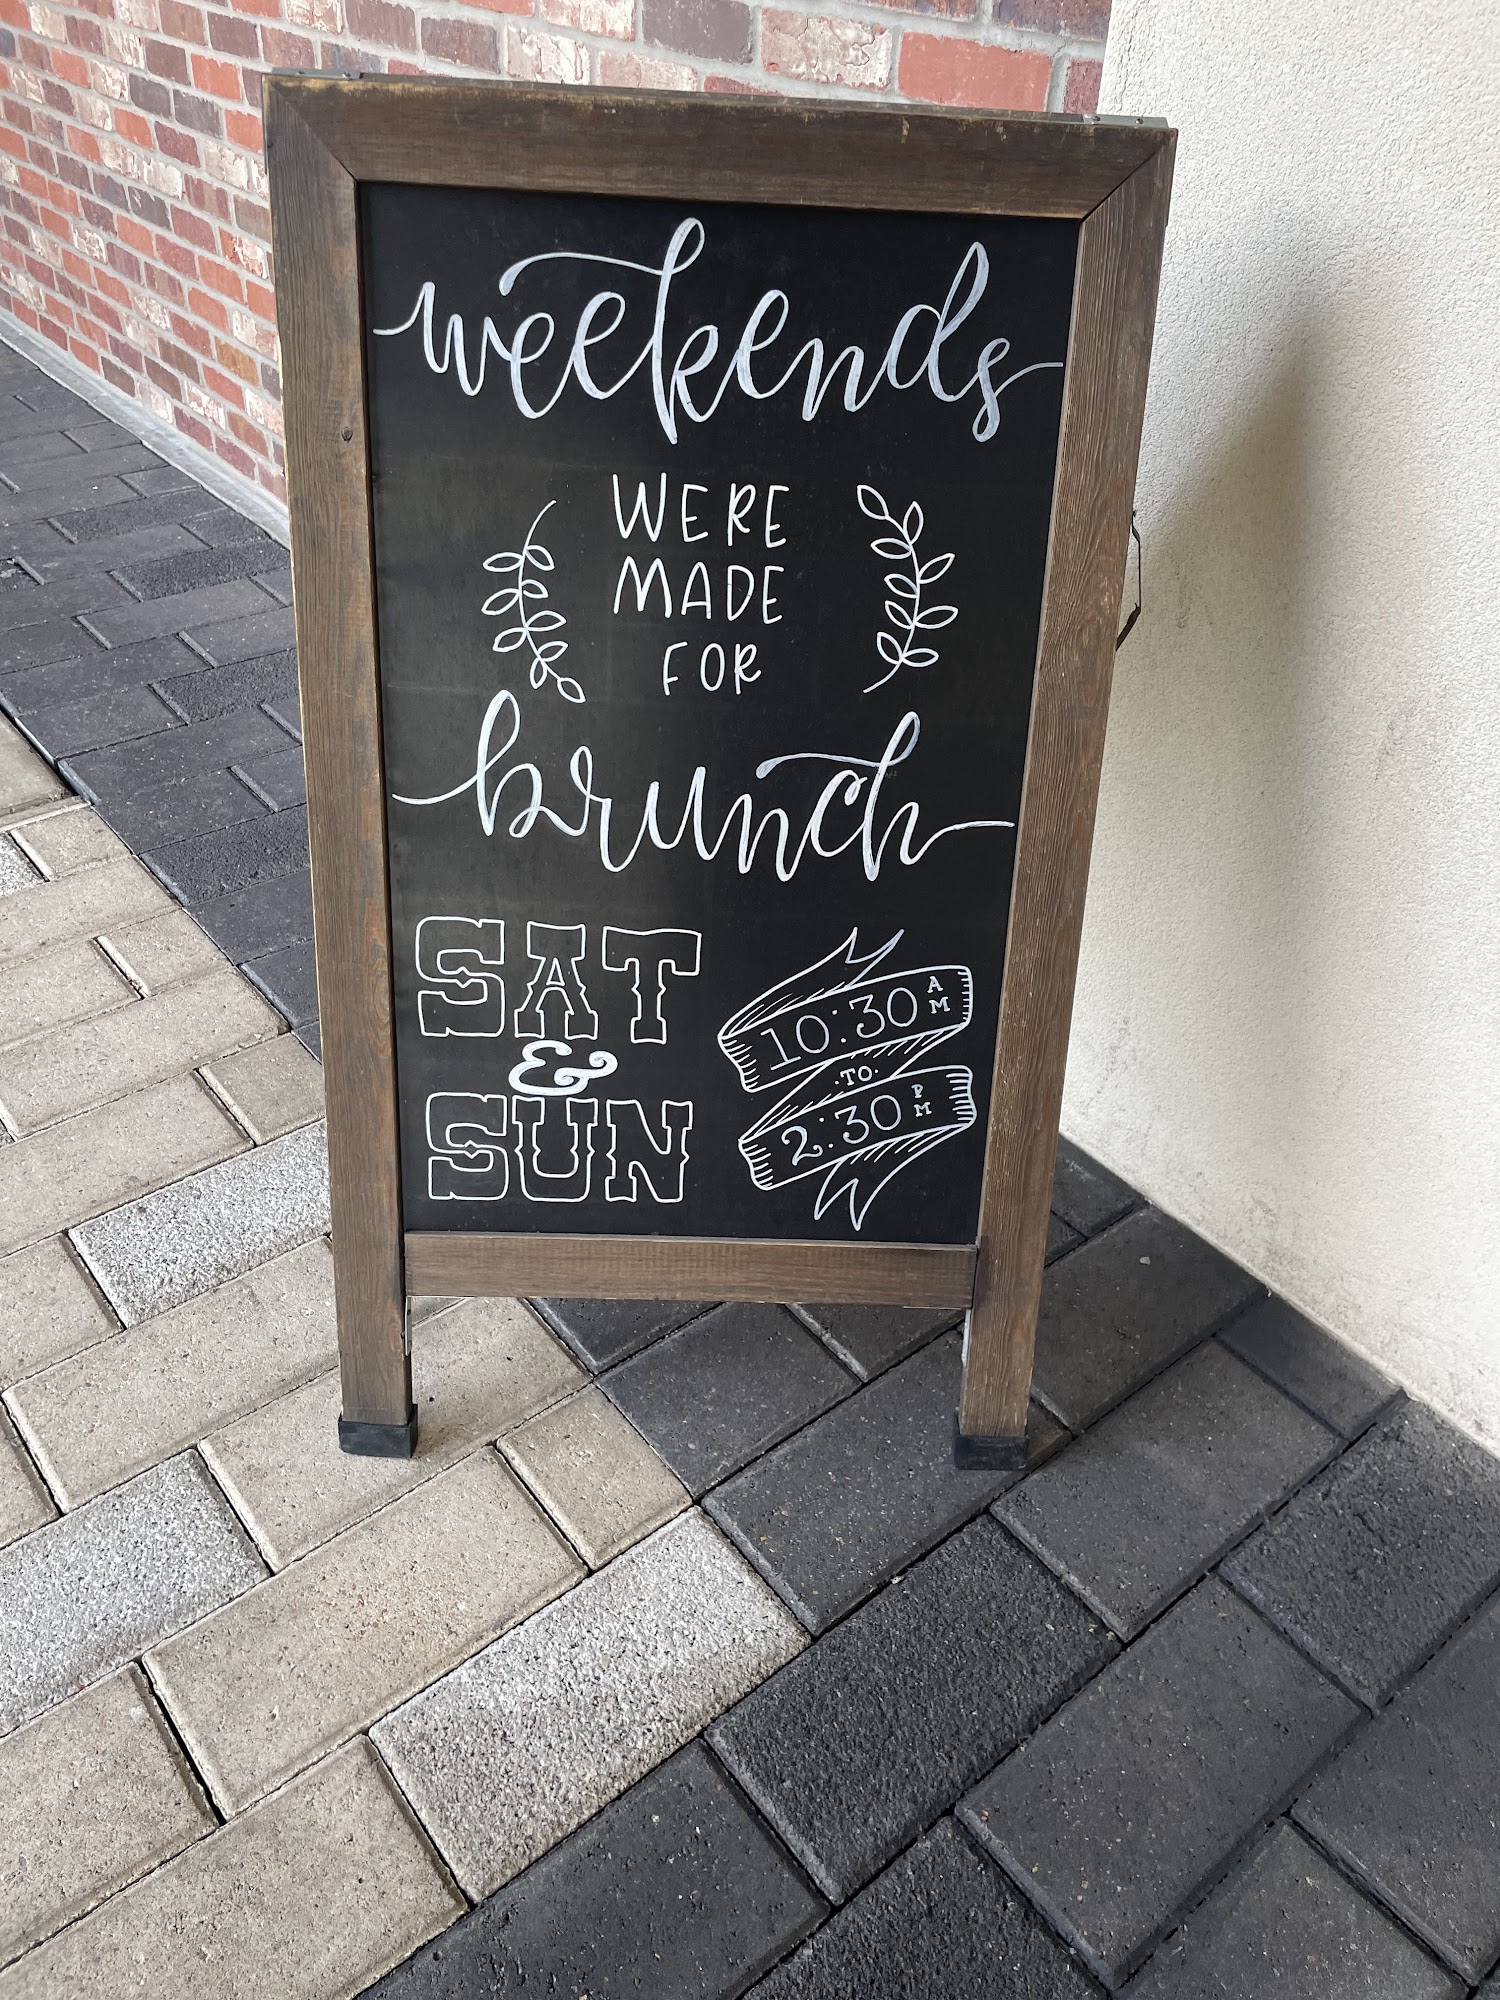 weekends
WERE
MADE
FOR
brunch
SAT
&
SUN
10:30 AM
·TO·
2:30 PM